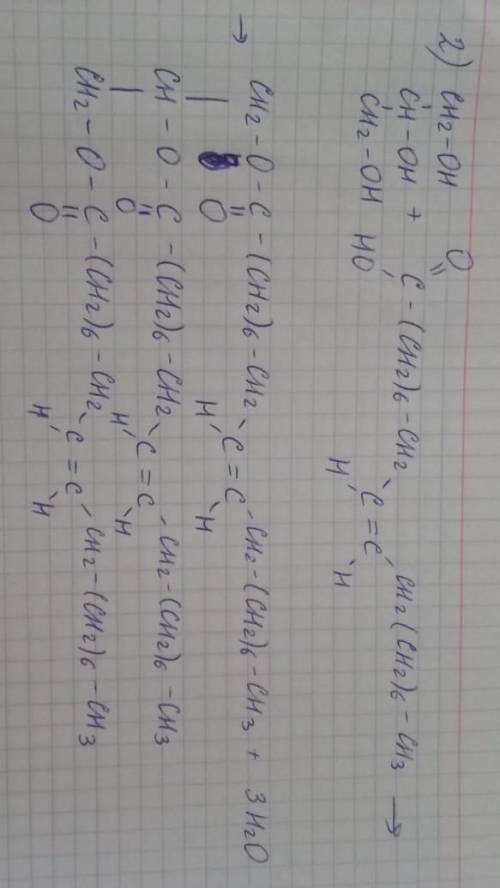 2) CH₂-OH
O
CH-OH + HO C-(CH₂)₆-CH₂ C=C CH₂(CH₂)₆-CH₃ →
H H
CH₂-OH
→ CH₂-O-C-(CH₂)₆-CH₂ C=C CH₂-(CH₂)₆-CH₃ + 3H₂O
O H H
CH-O-C-(CH₂)₆-CH₂ C=C CH₂-(CH₂)₆-CH₃
O H H
CH₂-O-C-(CH₂)₆-CH₂ C=C CH₂-(CH₂)₆-CH₃
O H H